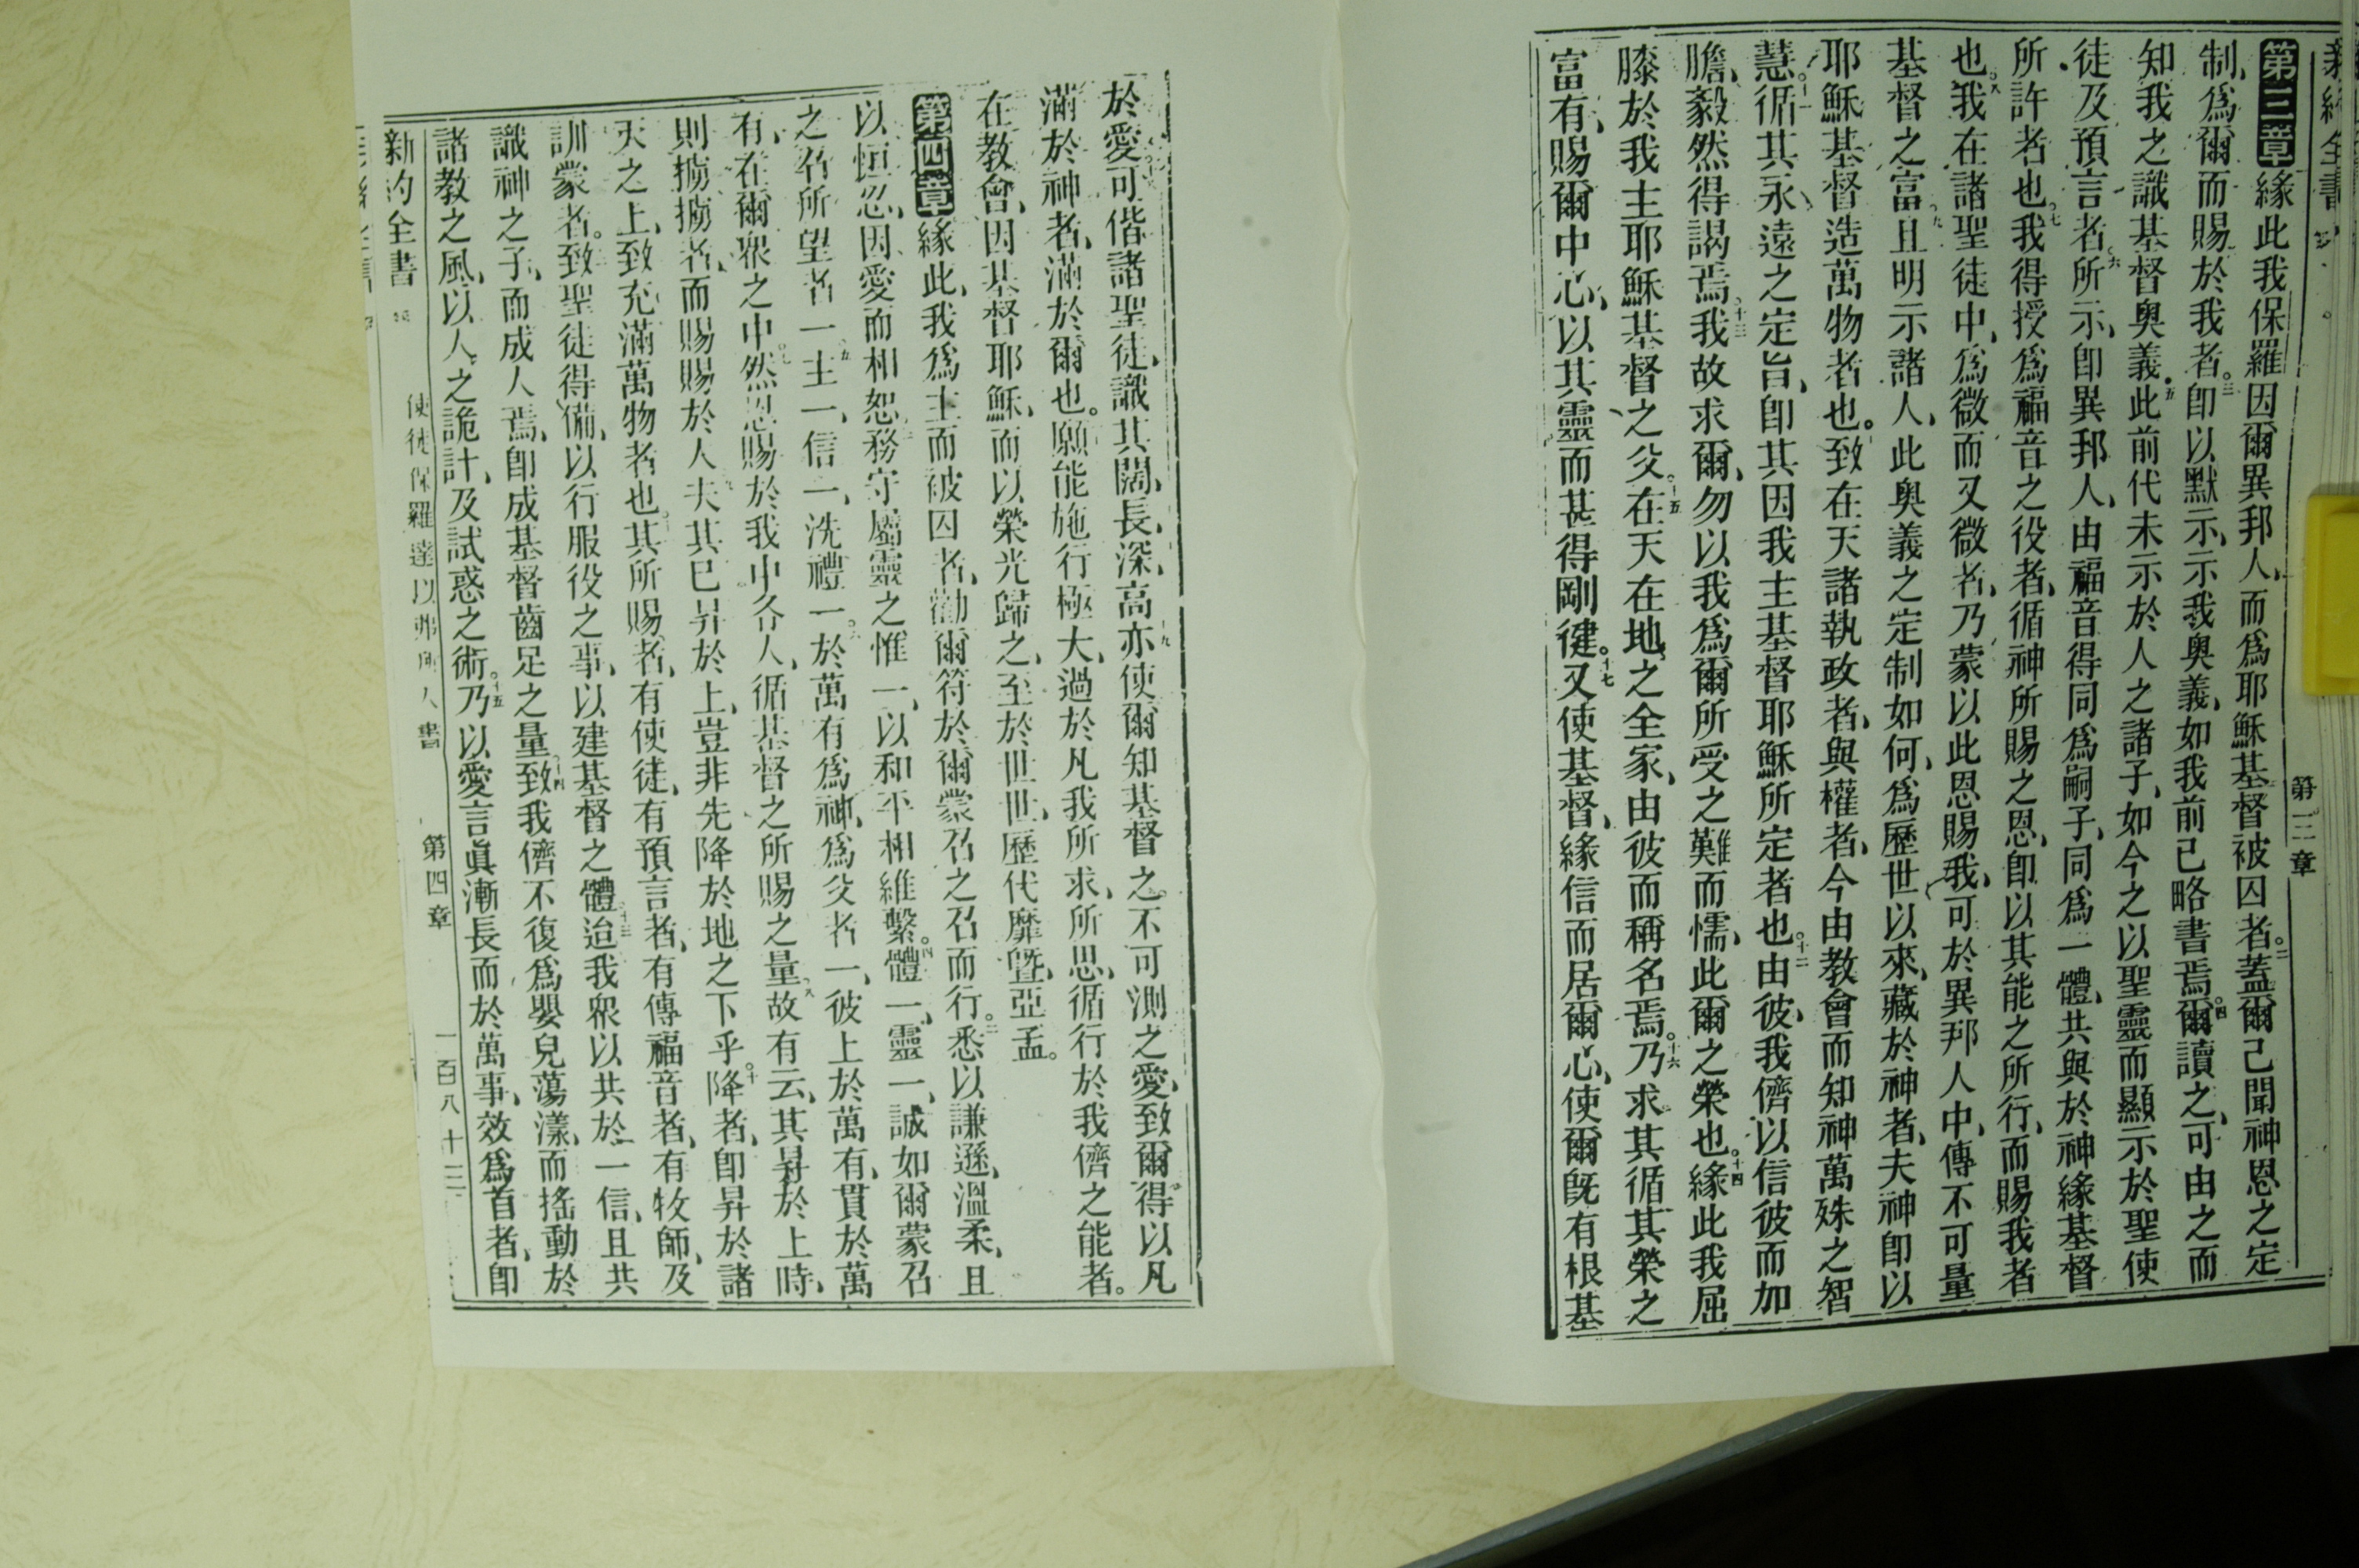 新約全書
第三章
第三章緣此我保羅因爾異邦人、而爲耶穌基督被囚者。二蓋爾已聞神恩之定
制、爲爾而賜於我者。三卽以默示、示我奧義、如我前已略書焉。四爾讀之、可由之而
知我之識基督奧義。五此前代未示於人之諸子、如今之以聖靈而顯示於聖使
徒及預言者。六所示、卽異邦人、由福音得同爲嗣子、同爲一體、共與於神緣基督
所許者也。七我得授爲福音之役者、循神所賜之恩、卽以其能之所行、而賜我者
也。八我在諸聖徒中、爲微而又微者、乃蒙以此恩賜我、可於異邦人中、傳不可量
基督之富。九且明示諸人、此奧義之定制如何、爲歷世以來、藏於神者、夫神卽以
耶穌基督造萬物者也。致在天諸執政者、與權者、今由教會而知神萬殊之智
慧。十一循其永遠之定旨、卽其因我主基督耶穌所定者也。十二由彼、我儕以信彼而加
膽、毅然得謁焉。十三我故求爾、勿以我爲爾所受之難而懦、此爾之榮也。十四緣此我屈
膝於我主耶穌基督之父。十五在天在地之全家、由彼而稱名焉。十六乃求其循其榮之
富有、賜爾中心、以其靈而甚得剛健。十七又使基督、緣信而居爾心、使爾旣有根基
於愛。可偕諸聖徒、識其闊、長、深、高。十九亦使爾知基督之不可測之愛、致爾得以凡
滿於神者、滿於爾也。願能施行極大、過於凡我所求、所思、循行於我儕之能者。
在教會、因基督耶穌、而以榮光歸之、至於世世、歷代靡曁、亞孟。
第四章緣此、我爲主而被囚者、勸爾符於爾蒙召之召而行。二悉以謙遜、溫柔、且
以恒忍、因愛而相恕。務守屬靈之惟一、以和平相維繫。四體一、靈一、誠如爾蒙召
之召所望者一。五主一、信一、洗禮一。六於萬有爲神、爲父者一、彼上於萬有、貫於萬
有、在爾衆之中。七然恩賜於我中各人、循基督之所賜之量。八故有云、其昇於上時、
則擄擄者、而賜賜於人。夫其已昇於上、豈非先降於地之下乎。十降者、卽昇於諸
天之上、致充滿萬物者也。其所賜者、有使徒、有預言者、有傳福音者、有牧師、及
訓蒙者。致聖徒得備、以行服役之事、以建基督之體。十三迨我衆以共於一信、且共
識神之子、而成人焉、卽成基督齒足之量。十四致我儕不復爲嬰兒蕩漾、而搖動於
諸教之風、以人之詭計、及試惑之術。十五乃以愛言眞漸長而於萬事、效爲首者、卽
新約全書
使徒保羅達以弗所人書
第四章
一百八十三